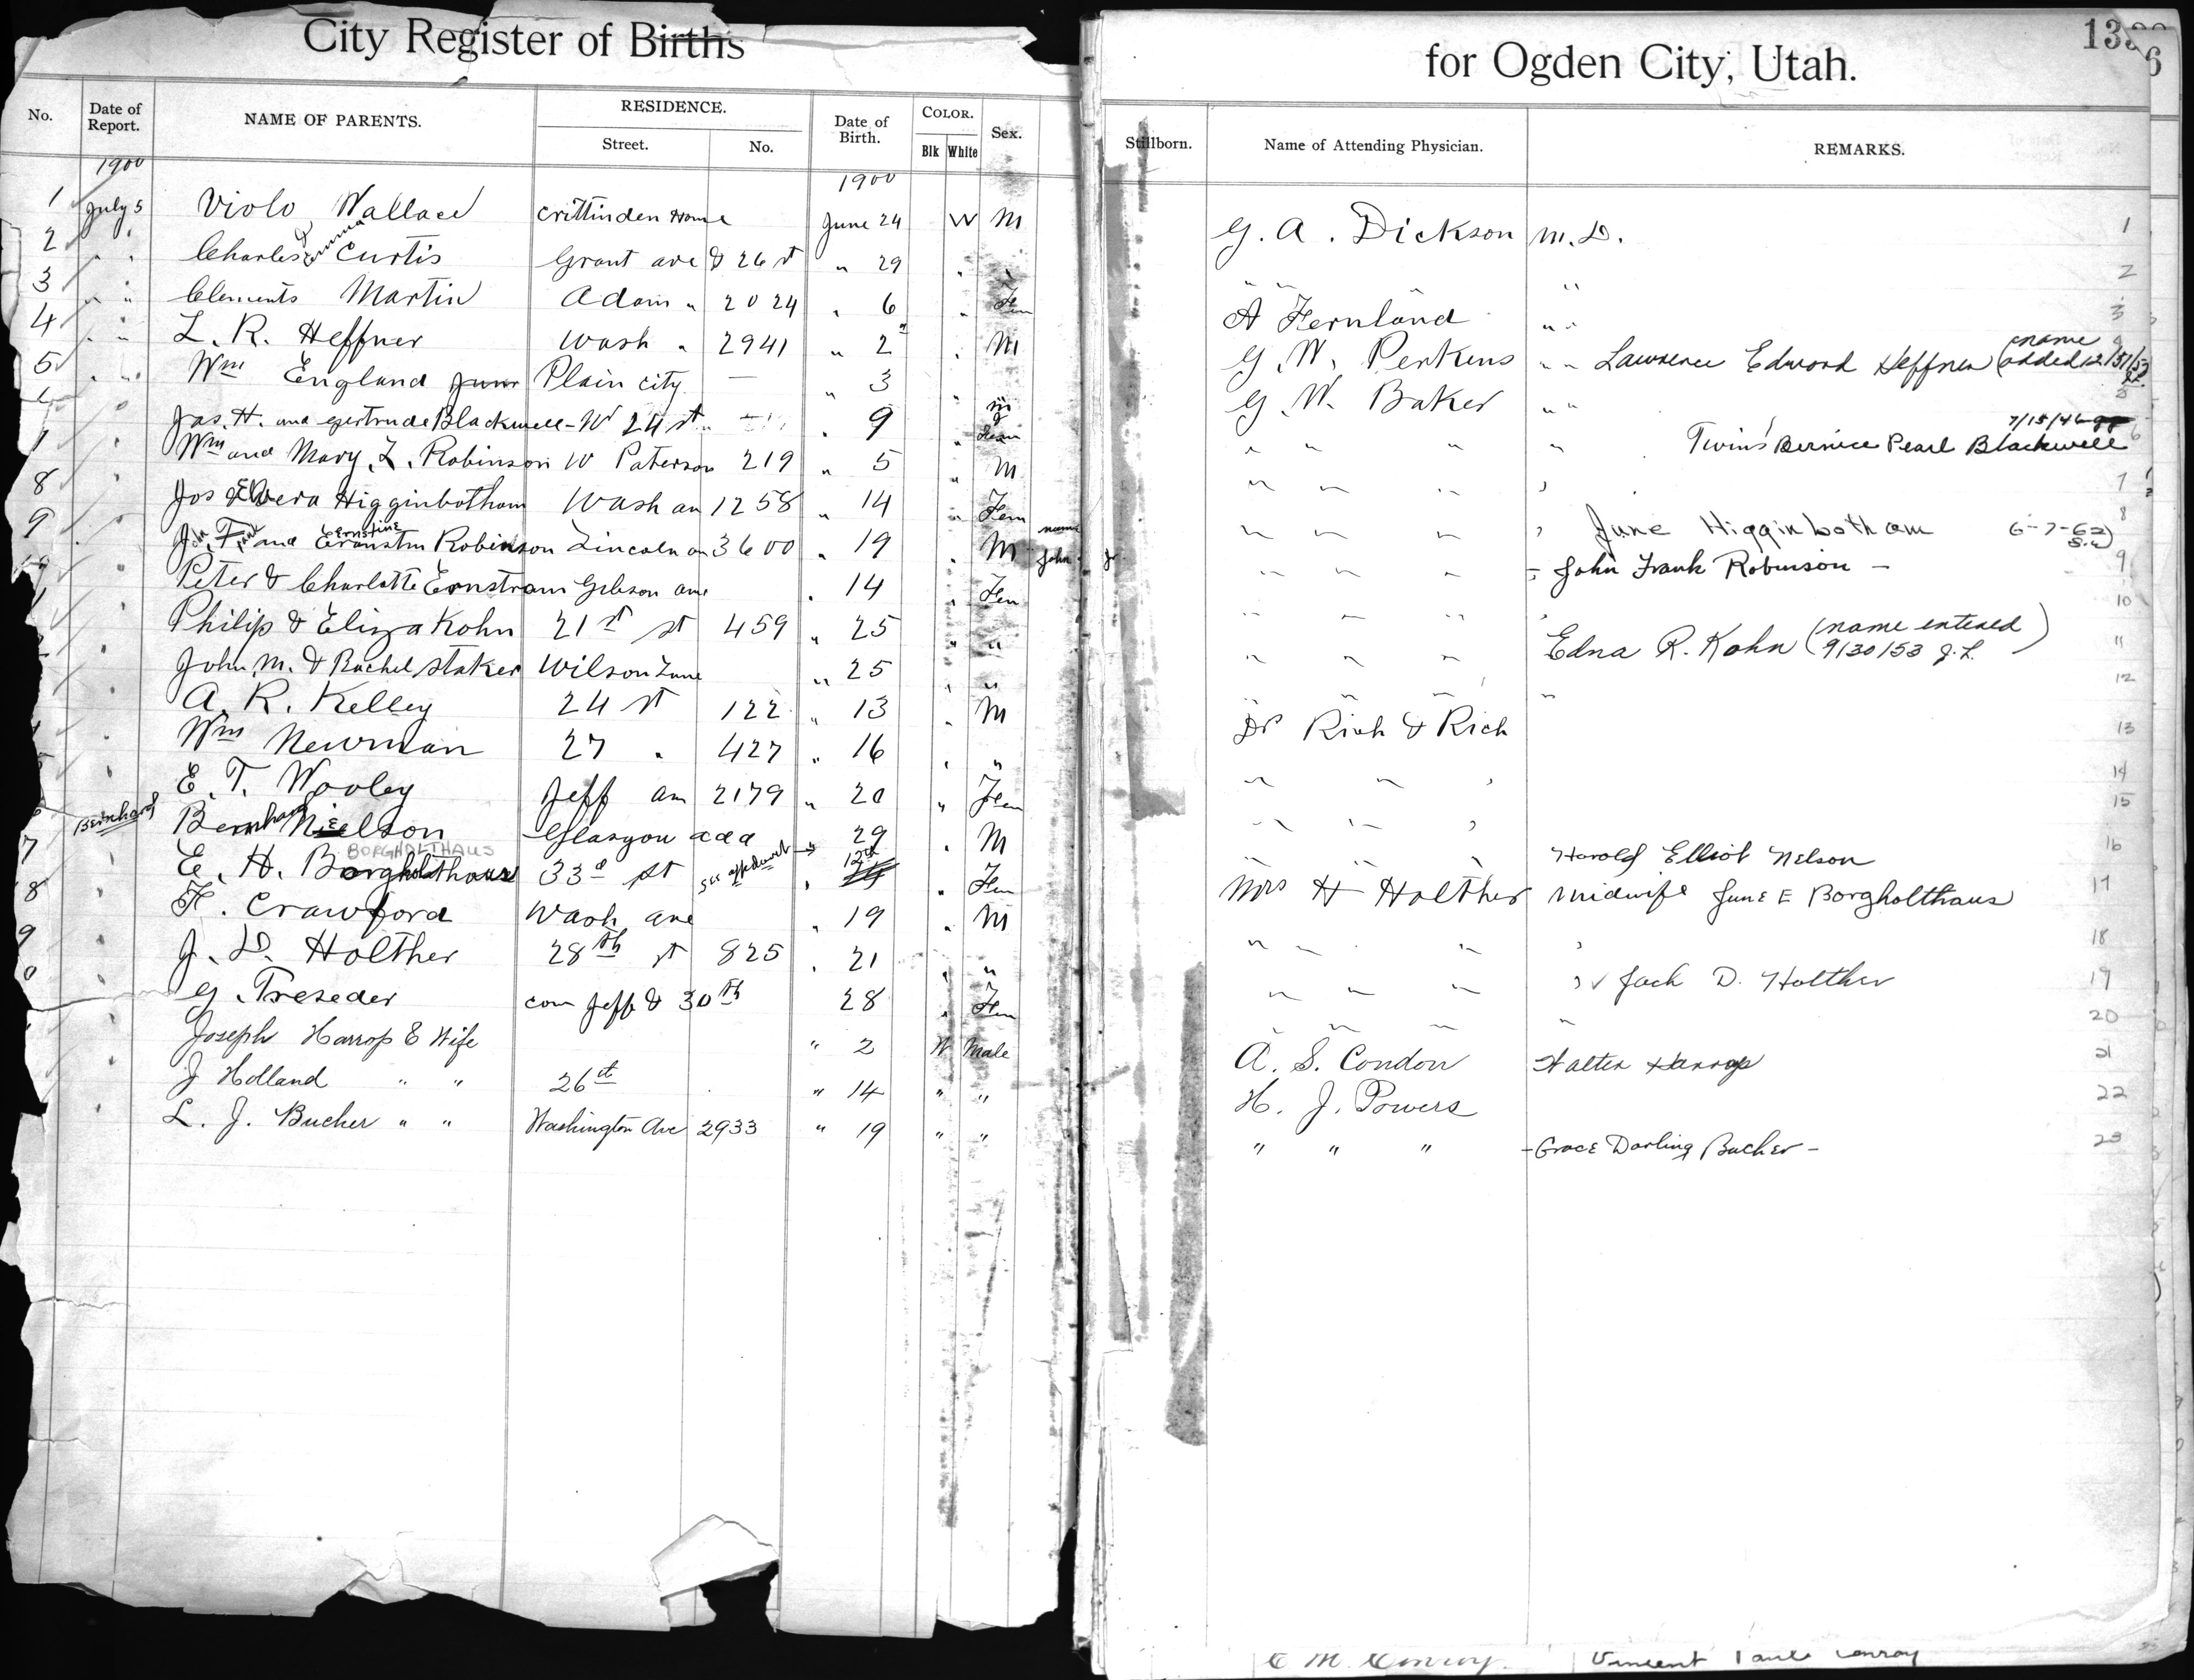 City Register of Births for Ogden City, Utah.
133
6
No. Date of Report. NAME OF PARENTS. RESIDENCE. Street. No. Date of Birth. COLOR. Blk White Sex. Stillborn. Name of Attending Physician. REMARKS.
1900 1900
1 July 5 Violo Wallace Crittinden Home June 24 W M G. A. Dickson M.D. 1
2 " " Charles & Emma Curtis Grant ave & 26 st " 29 " " " " " " 2
3 " " Clements Martin Adam " 2024 " 6 " Fem A Fernlund " " 3
4 " " L. R. Heffner Wash " 2941 " 2 " M G. W. Perkins " " Lawrence Edward Heffner (name added 12/31/53
5 " " Wm England Junr Plain City — " 3 " M G. W. Baker " " 5
" Jas. H. and Gertrude Blackwell - W 24 st " 9 " Fem " " " " Twins Bernice Pearl Blackwell 7/15/46 6
" Wm and Mary L. Robinson W Paterson 219 " 5 " M " " " " 7
8 " Jos & Elvera Higginbotham Wash av 1258 " 14 " Fem " " " " June Higginbotham 6-7-62 8
9 " John F. and Ernstine Robinson Lincoln av 3600 " 19 " M name John Jr " " " - John Frank Robinson - 9
" Peter & Charlotte Ernstrom Gibson ave " 14 " Fem " " " " 10
" Philip & Eliza Kohn 21 st st 459 " 25 " " " " " Edna R. Kohn (name entered 9/30/53 J.L.) 11
" John M. & Rachel Staker Wilson Lane " 25 " " " " " " 12
" A. R. Kelley 24 st 122 " 13 " M Dr Rich & Rich 13
" Wm Newman 27 " 427 " 16 " " " " " 14
" E. T. Wooley Jeff av 2179 " 20 " Fem " " " 15
Bernhard Bernhard Nielson Glasgow add 29 " M " " " Harold Elliot Nelson 16
7 " E. H. Borgholthaus BORGHOLTHAUS 33d st see affidavit → 12th " Fem Mrs H Holther Midwife June E Borgholthaus 17
8 " F. Crawford Wash ave " 19 " M " " " " 18
9 " J. D. Holther 28th st 825 " 21 " " " " " " ✓ Jack D. Holther 19
0 " G. Treseder cor Jeff & 30th 28 " Fem " " " " 20
" Joseph Harrop & Wife " 2 W Male A. S. Condon Walter Harrop 21
" J Holland " " 26 st " 14 " " H. J. Powers 22
" L. J. Bucher " " Washington Ave 2933 " 19 " " " " " - Grace Darling Bucher - 23
C M. Conroy. Vincent Paul Conroy